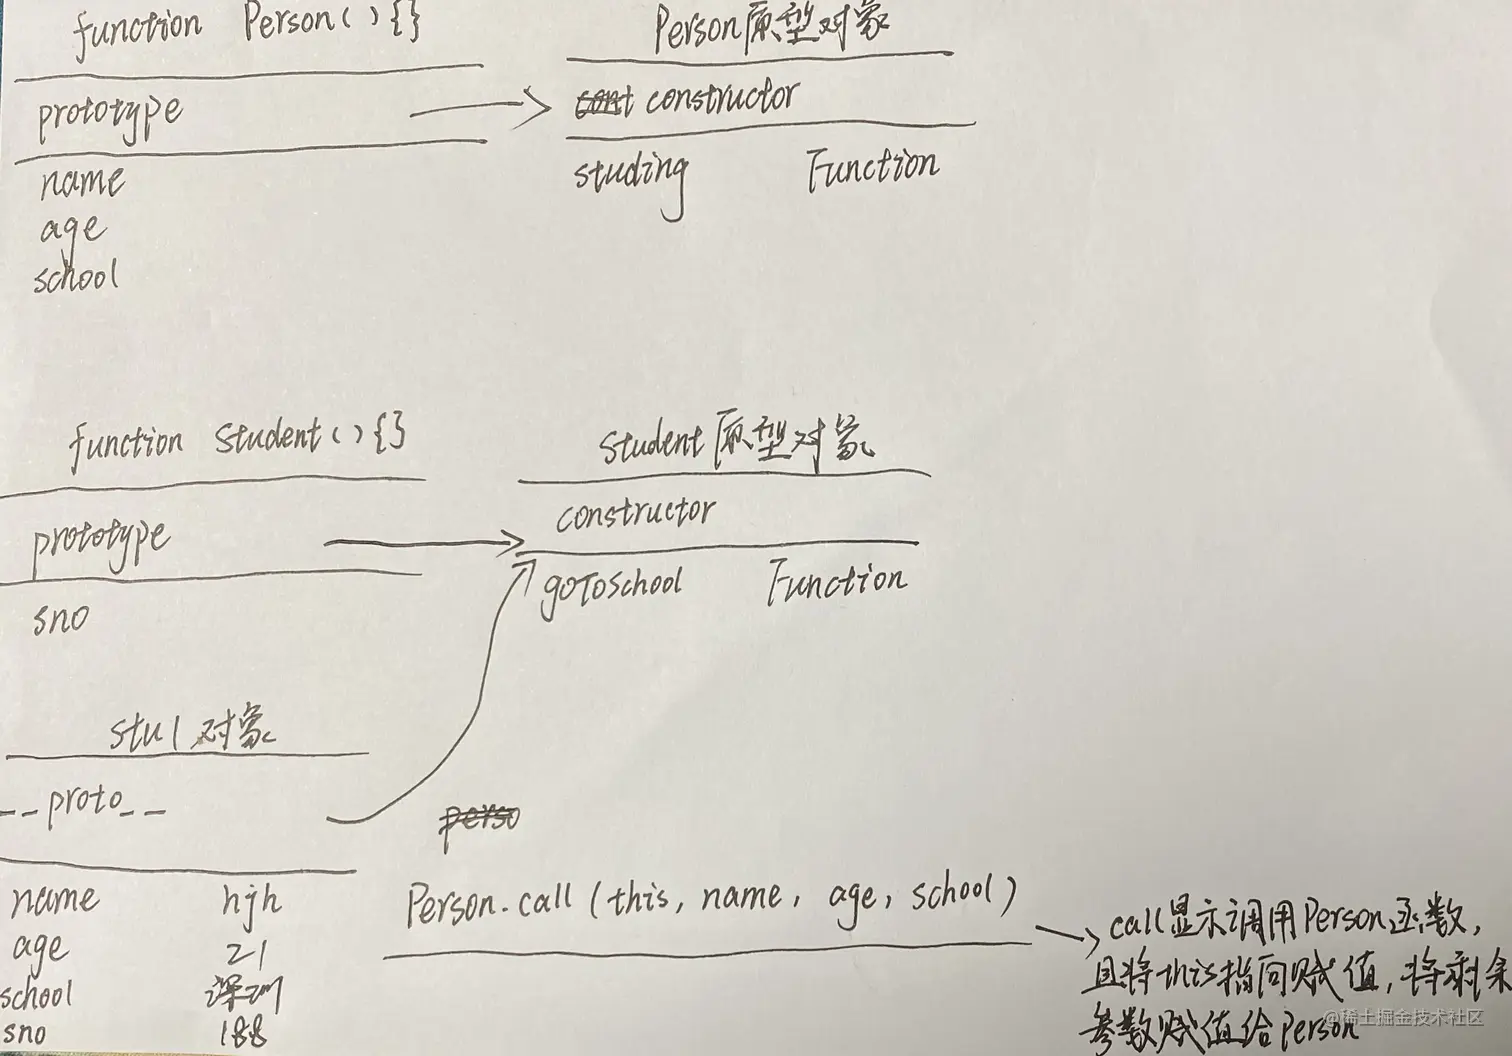 function Person(){}
Person原型对象
prototype
constructor
studing Function
name
age
school
function Student(){}
Student原型对象
prototype
constructor
goToschool Function
sno
stu1对象
__proto__
perso
name hjh
age 21
school 深圳
sno 188
Person.call(this, name, age, school)
call显示调用Person函数,
且将this指向赋值,将剩余
参数赋值给Person
@稀土掘金技术社区